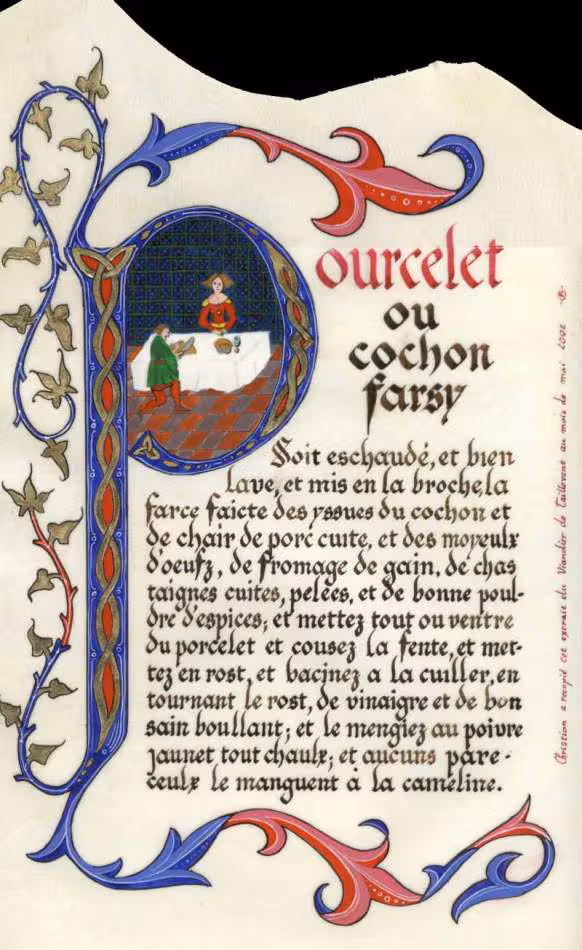 Pourcelet
ou
cochon
farsy
Soit eschaudé, et bien
lave, et mis en la broche, la
farce faicte des yssues du cochon et
de chair de porc cuite, et des moyeulx
d'oeufz, de fromage de gain, de chas
taignes cuites, pelées, et de bonne poul-
dre d'espices; et mettez tout ou ventre
du porcelet et cousez la fente, et met-
tez en rost, et bacinez a la cuiller, en
tournant le rost, de vinaigre et de bon
sain boullant; et le mengiez au poivre
jaunet tout chaulx; et aucuns pare-
ceulx le manguent à la cameline.
Christian a recopié cet extrait du Viandier de Taillevent au mois de mai 2002